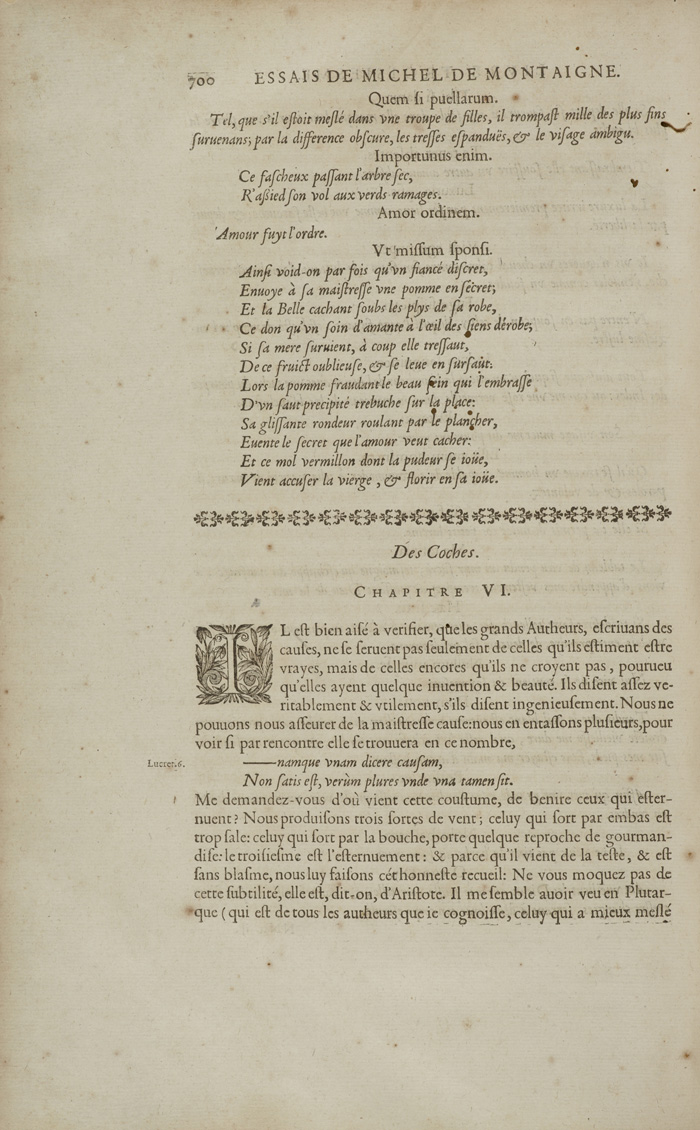 700 ESSAIS DE MICHEL DE MONTAIGNE.
Quem si puellarum.
Tel, que s'il estoit meslé dans vne troupe de filles, il trompast mille des plus fins
suruenans; par la difference obscure, les tresses espanduës, & le visage ambigu.
Importunus enim.
Ce fascheux passant l'arbre sec,
R'assied son vol aux verds ramages.
Amor ordinem.
Amour fuyt l'ordre.
Vt missum sponsi.
Ainsi void-on par fois qu'vn fiancé discret,
Enuoye à sa maistresse vne pomme en secret;
Et la Belle cachant soubs les plys de sa robe,
Ce don qu'vn soin d'amante à l'œil des siens dérobe;
Si sa mere suruient, à coup elle tressaut,
De ce fruict oublieuse, & se leue en sursaut:
Lors la pomme fraudant le beau sein qui l'embrasse
D'vn saut precipité trebuche sur la place:
Sa glissante rondeur roulant par le plancher,
Euente le secret que l'amour veut cacher:
Et ce mol vermillon dont la pudeur se ioüe,
Vient accuser la vierge, & florir en sa ioüe.
Des Coches.
CHAPITRE VI.
IL est bien aisé à verifier, que les grands Autheurs, escriuans des
causes, ne se seruent pas seulement de celles qu'ils estiment estre
vrayes, mais de celles encores qu'ils ne croyent pas, pourueu
qu'elles ayent quelque inuention & beauté. Ils disent assez ve-
ritablement & vtilement, s'ils disent ingenieusement. Nous ne
pouuons nous asseurer de la maistresse cause: nous en entassons plusieurs, pour
voir si par rencontre elle se trouuera en ce nombre,
Lucret. 6. ——namque vnam dicere causam,
Non satis est, verùm plures vnde vna tamen sit.
Me demandez-vous d'où vient cette coustume, de benire ceux qui ester-
nuent? Nous produisons trois sortes de vent; celuy qui sort par embas est
trop sale: celuy qui sort par la bouche, porte quelque reproche de gourman-
dise: le troisiesme est l'esternuement: & parce qu'il vient de la teste, & est
sans blasme, nous luy faisons cét honneste recueil: Ne vous moquez pas de
cette subtilité, elle est, dit-on, d'Aristote. Il me semble auoir veu en Plutar-
que (qui est de tous les autheurs que ie cognoisse, celuy qui a mieux meslé